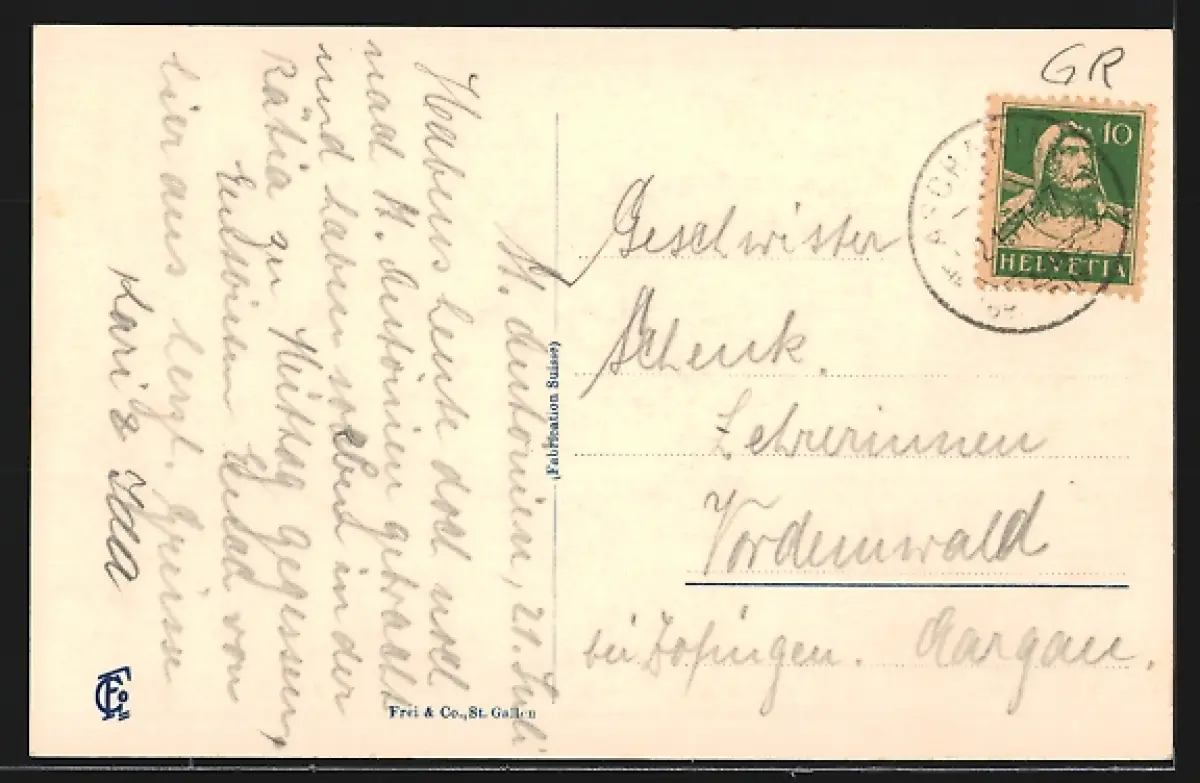 St. Antönien, 21. Juli
Haben heute doch noch
nach St. Antönien getrachtet
und haben soeben in der
Rätia zu Mittag gegessen,
Entbieten Euch von
hier aus herzl. Grüsse
Kari & Ida
(Fabrication Suisse)
Frei & Co., St. Gallen
GR
10
HELVETIA
Geschwister
Schenk.
Lehrerinnen
Vordemwald
bei Zofingen. Aargau.